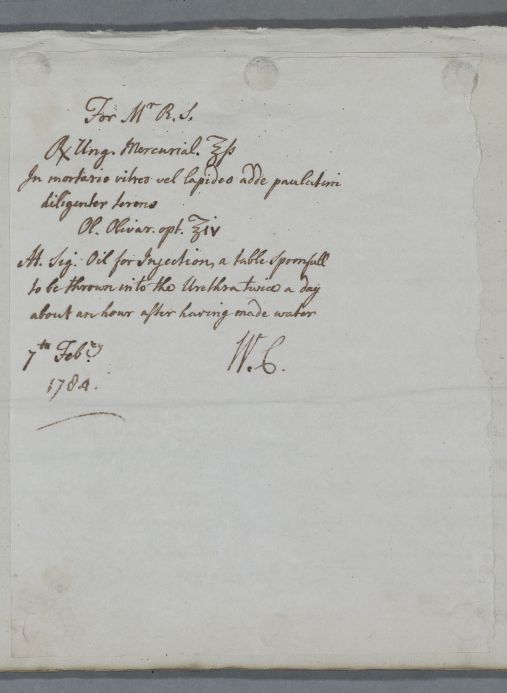 For Mr R. S.
℞ Ung. Mercurial. ℥ß
In mortario vitreo vel lapideo adde paulatim
diligenter terens
Ol. Olivar. opt. ℥iv
M. Sig. Oil for Injection, a table spoonfull
to be thrown into the Urethra twice a day
about an hour after having made water
7th Febry W. C.
1784.